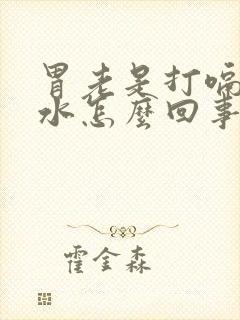 胃老是打嗝
水怎麼回事
霍金森